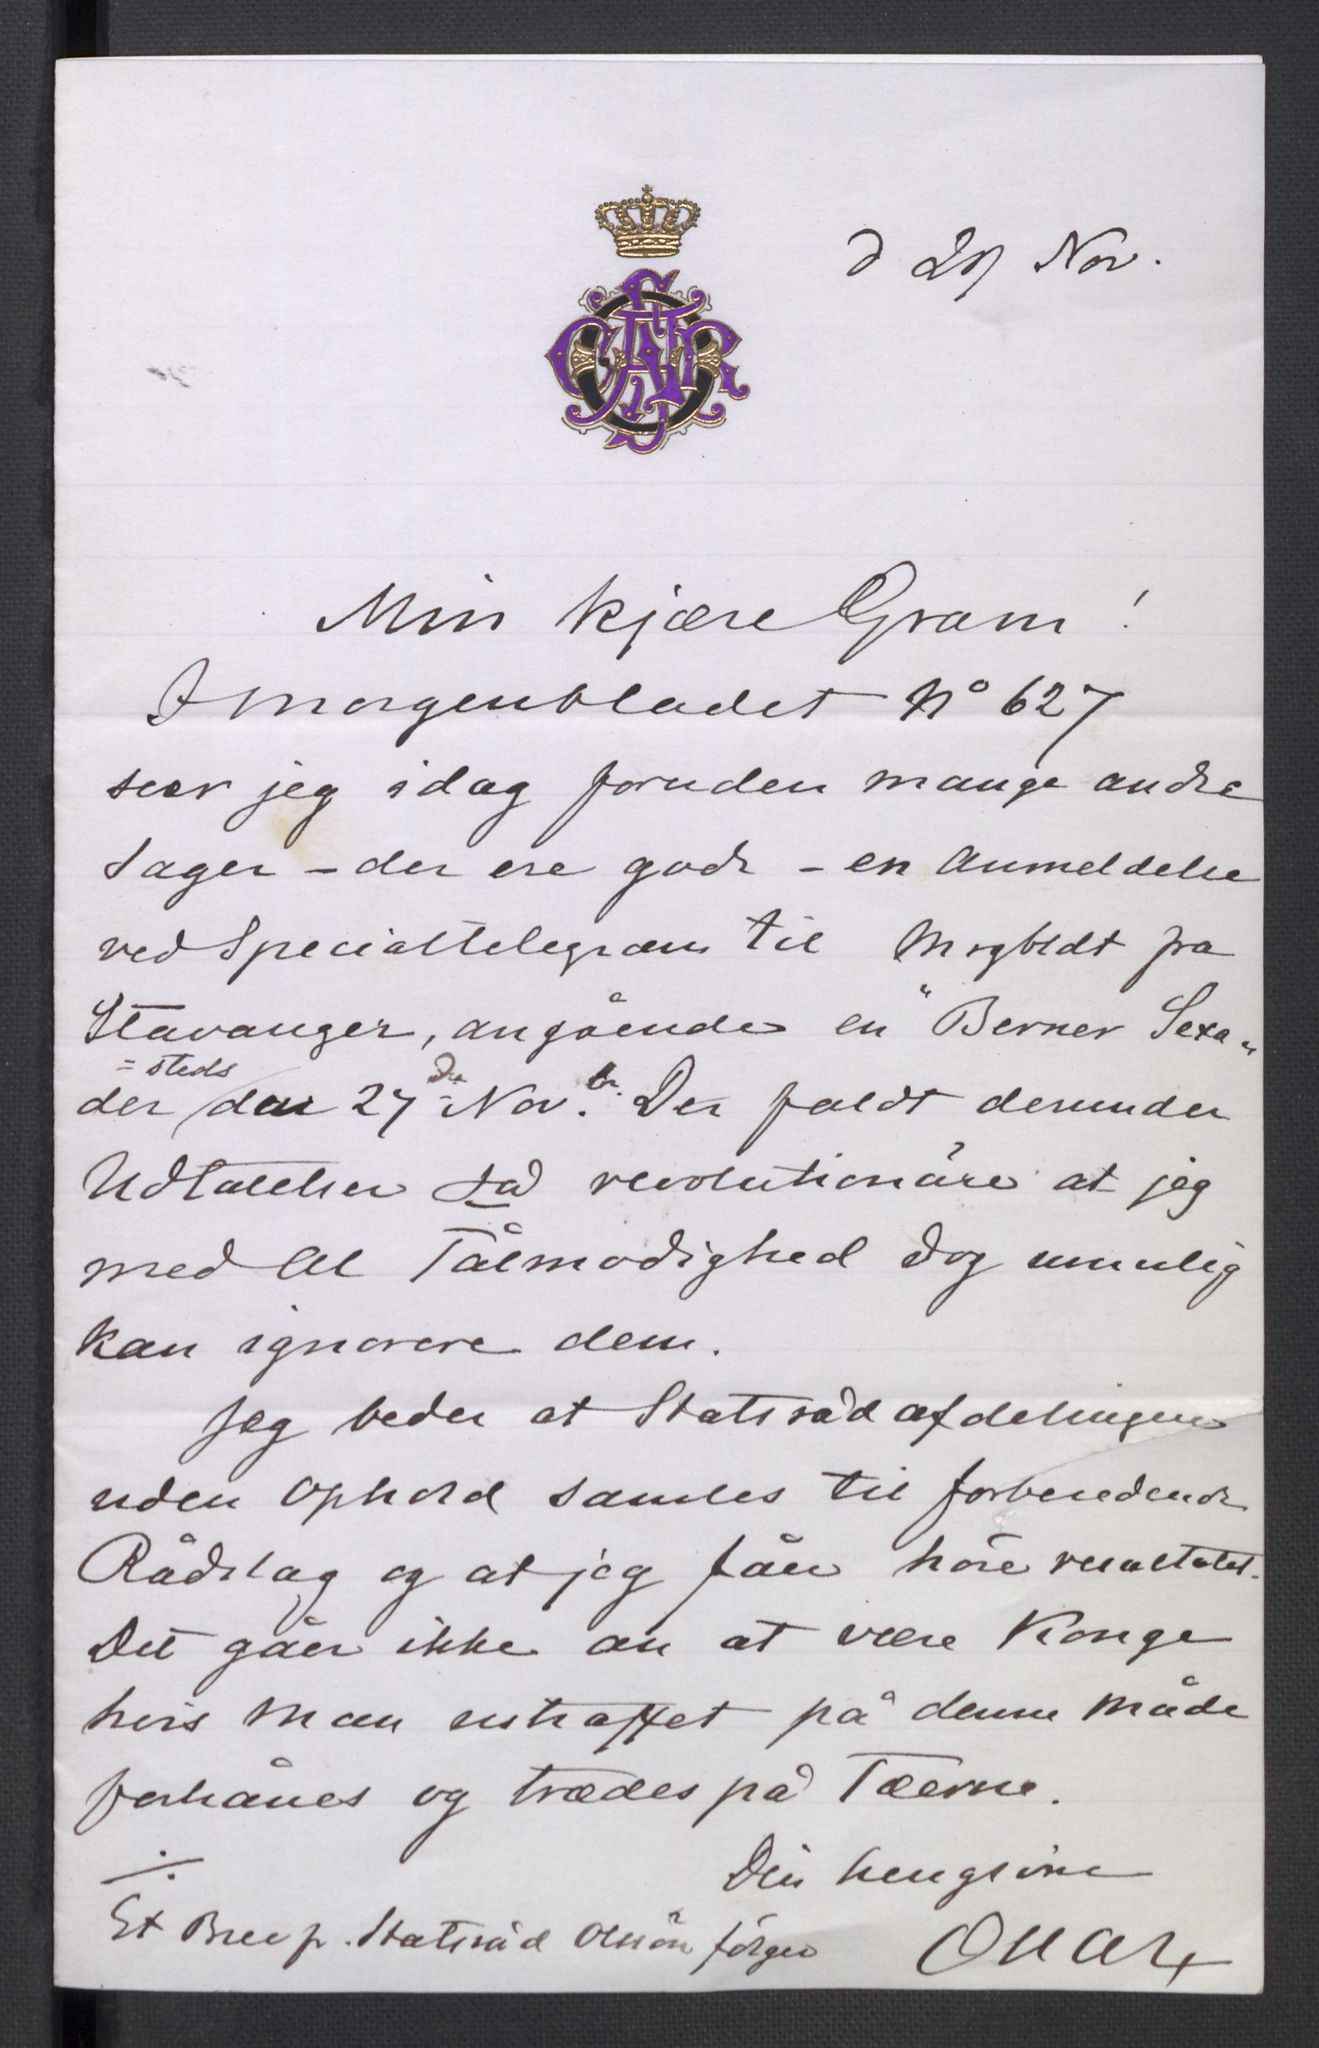 d 29 Nov.
Min kjære Gram!
I Morgenbladet No 627
seer jeg idag foruden mange andre
Sager – der ere gode – en Anmeldelse
ved Specialtelegram til Mrgbldt fra
Stavanger, angående en "Berner Sexa"
=steds
der den 27de Novbr. Der faldt derunder
Udtalelser så revolutionäre at jeg
med al Tålmodighed dog umulig
kan ignorere dem.
Jeg beder at Statsrådafdelingen
uden Ophold samles til forberedende
Rådslag og at jeg fåer höre resultatet.
Det gåer ikke an at være Konge
hvis Man ustraffet på denne Måde
forhånes og trædes på Tæerne.
Din hengivne
Et Brev fr. Statsråd Olssön fölger
Oscar